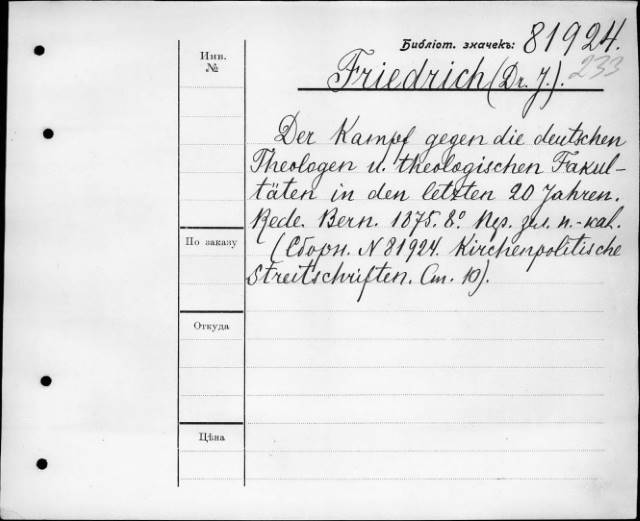 Библіот. значекъ: 81924.
233
Friedrich (Dr. J.).
Инв.
№
Der Kampf gegen die deutschen
Theologen u. theologischen Fakul-
täten in den letzten 20 Jahren.
Rede. Bern. 1875. 8º
(Сборн. N 81924. Kirchenpolitische
Streitschriften. Ст. 10).
По заказу
Откуда
Цѣна